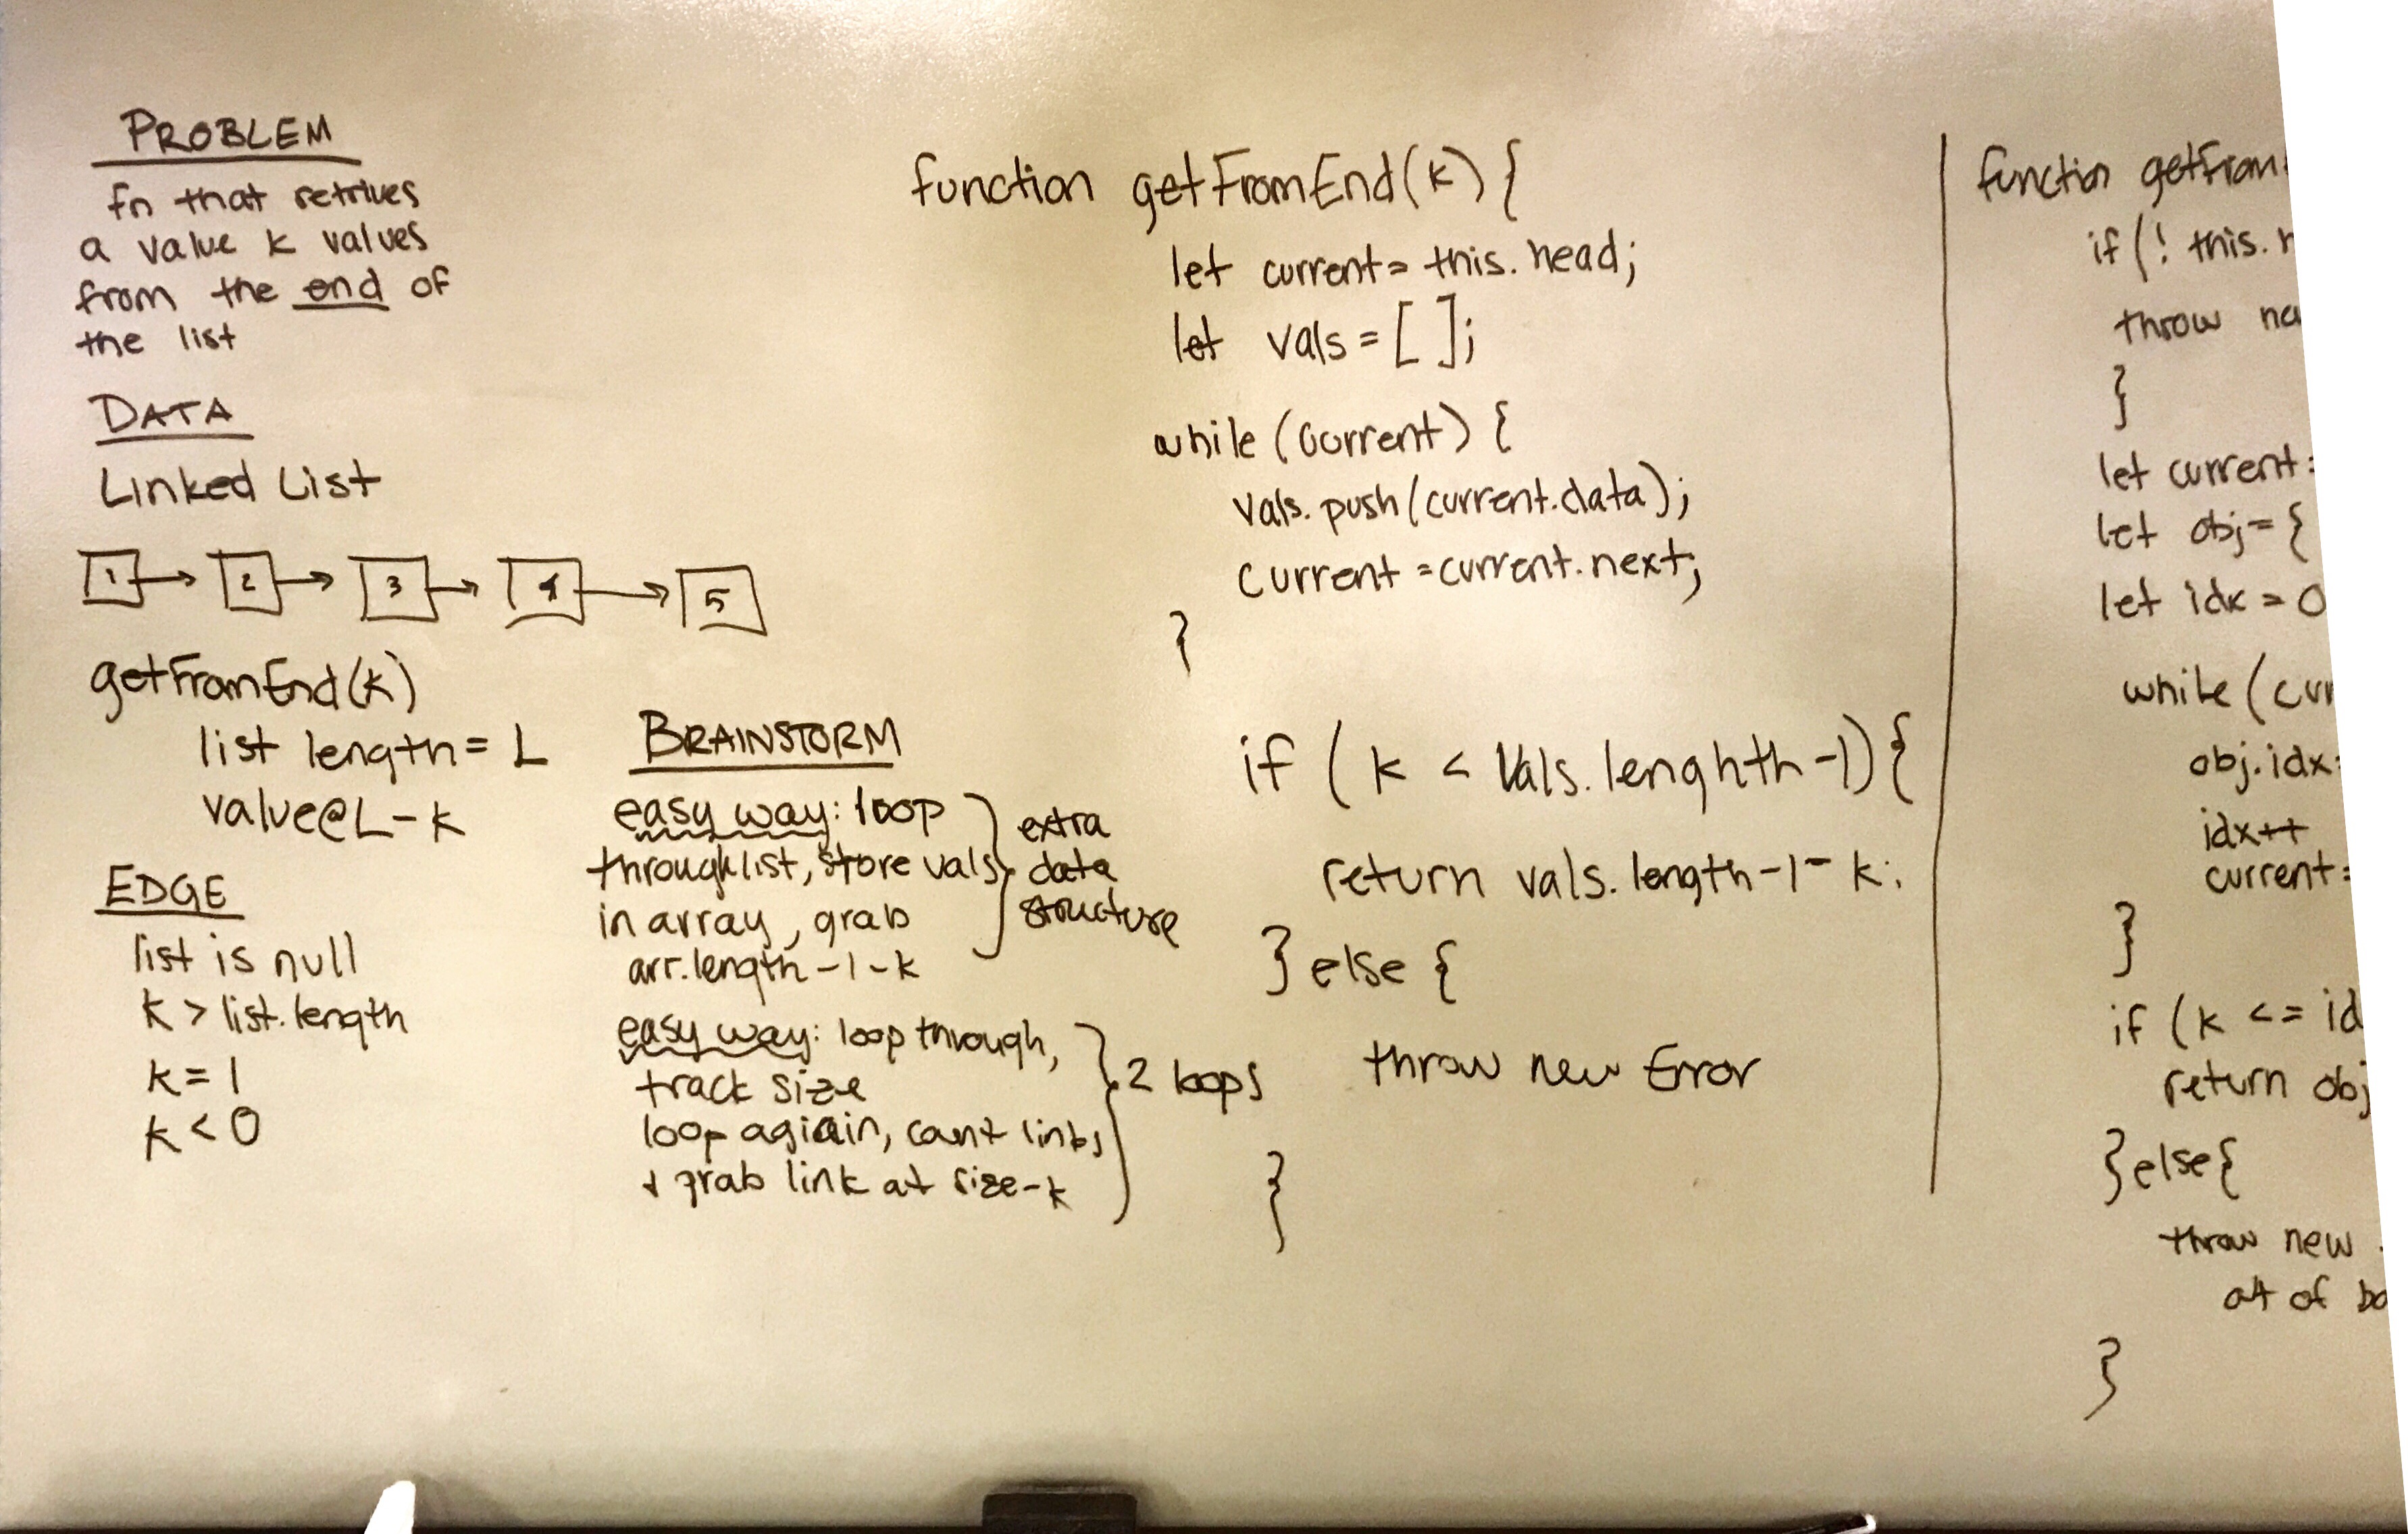 PROBLEM
fn that retrives
a value k values
from the end of
the list
DATA
Linked List
1 2 3 4 5
getFromEnd(k)
list length = L
value@L-k
EDGE
list is null
k > list.length
k = 1
k < 0
BRAINSTORM
easy way: loop
through list, store vals
in array, grab
arr.length-1-k
extra
data
structure
easy way: loop through,
track size
loop agiain, count links
+ grab link at size-k
2 loops
function getFromEnd(k) {
let current = this.head;
let vals = [ ];
while (current) {
vals.push(current.data);
current = current.next;
}
if ( k < Vals.lenghth -1) {
return vals.length-1-k;
} else {
throw new Error
}
function getFrom
if (! this.h
throw
}
let current =
let obj = {
let idx = 0
while (cur
obj.idx
idx++
current =
}
if (k <= id
return obj
} else {
throw new
of
}